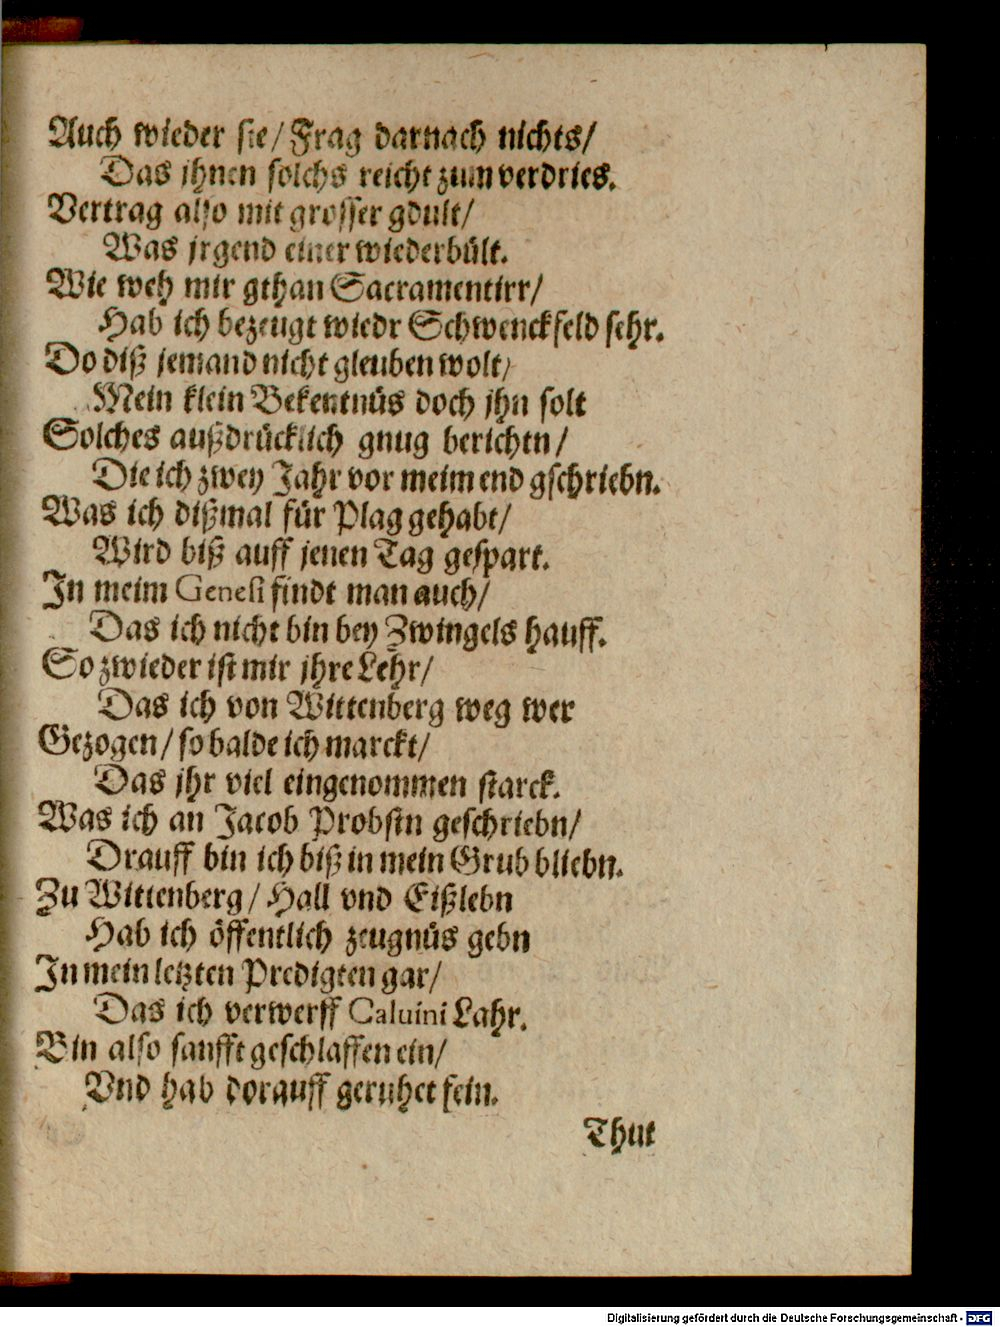 Auch wieder sie/ Frag darnach nichts/
Das jhnen solchs reicht zum verdries.
Vertrag also mit grosser gdult/
Was jrgend einer wiederbült.
Wie weh mir gthan Sacramentirr/
Hab ich bezeugt wiedr Schwenckfeld sehr.
Do diß jemand nicht gleuben wolt/
Mein klein Bekentnüs doch jhn solt
Solches außdrücklich gnug berichtn/
Die ich zwey Jahr vor meim end gschriebn.
Was ich dißmal für Plag gehabt/
Wird biß auff jenen Tag gespart.
In meim Genesi findt man auch/
Das ich nicht bin bey Zwingels hauff.
So zwieder ist mir jhre Lehr/
Das ich von Wittenberg weg wer
Gezogen/ so balde ich marckt/
Das jhr viel eingenommen starck.
Was ich an Jacob Probstn geschriebn/
Drauff bin ich biß in mein Grub bliebn.
Zu Wittenberg/ Hall vnd Eißlebn
Hab ich öffentlich zeugnüs gebn
In mein letzten Predigten gar/
Das ich verwerff Caluini Lahr.
Bin also sanfft geschlaffen ein/
Vnd hab dorauff geruhet fein.
Thut
Digitalisierung gefördert durch die Deutsche Forschungsgemeinschaft - DFG